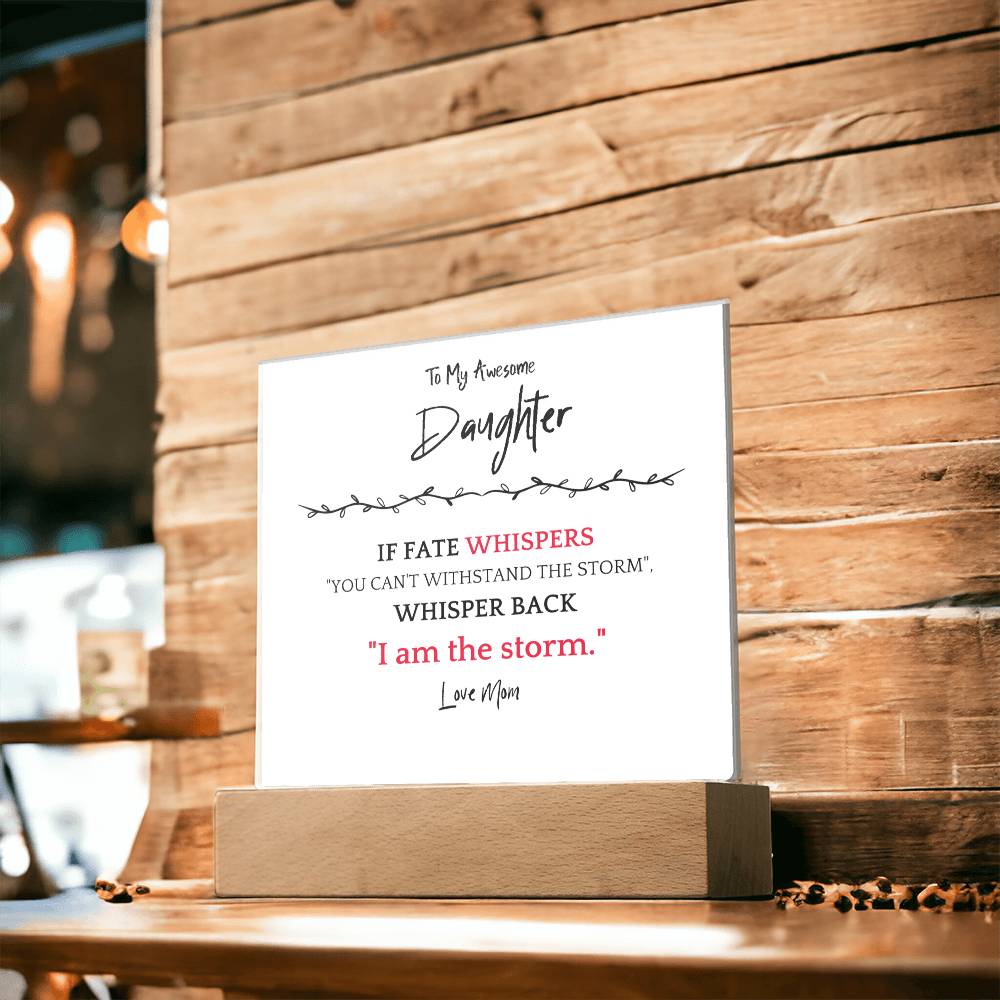 To My Awesome
Daughter
IF FATE WHISPERS
"YOU CAN'T WITHSTAND THE STORM",
WHISPER BACK
"I am the storm."
Love Mom